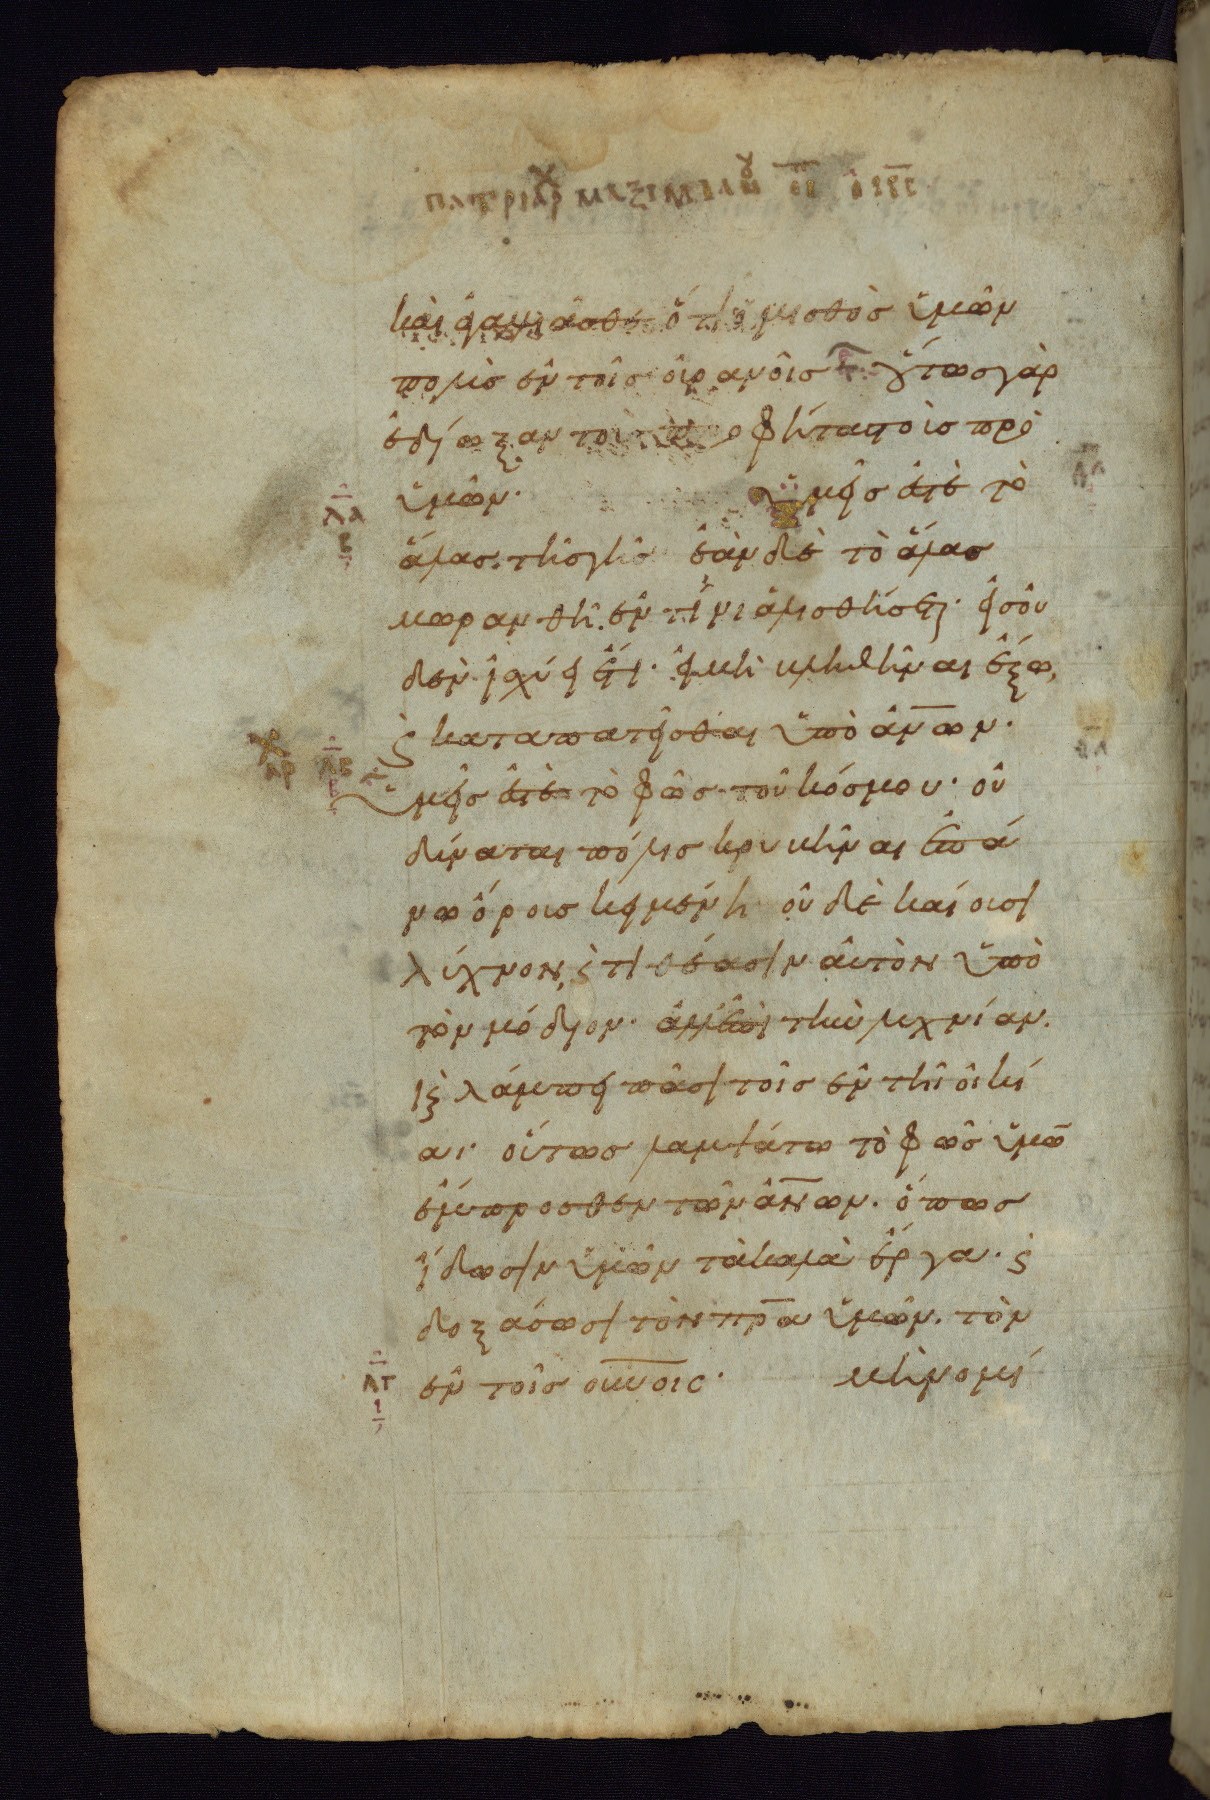 πατριαρχ μαξιμιανου
και ἀγαλλιᾶσθε ὅτι ὁ μισθὸσ ὑμῶν
πολὺσ ἐν τοῖσ οὐρανοῖσ οὕτωσ γὰρ
ἐδίωξαν τοὺσ προφήτασ τοὺσ πρὸ
λα
ὑμῶν· ὑμεῖσ ἐστὲ τὸ
β
ἅλασ τῆσ γῆσ ἐὰν δὲ τὸ ἅλασ
μωρανθῆ. ἐν τίνι ἁλισθήσεται· εἰσ οὐ
δὲν ἰσχύει ἔτι· εἰμὴ βληθῆναι ἔξω,
ϛ καταπατεῖσθαι ὑπὸ ἀν̅ων·
αρ λβ
ὑμεῖσ ἐστὲ τὸ φῶσ τοῦ κόσμου· οὐ
δύναται πόλισ κρυβῆναι ἐπά
νω ὄρουσ κειμένη οὐδὲ καίουσι
λύχνον, ϛ τιθέασιν αὐτὸν ὑπὸ
τὸν μόδιον· ἀλλ' ἐπὶ τὴν λυχνίαν.
ϗ λάμπει πᾶσι τοῖσ ἐν τῆ οἰκί
αι· οὕτωσ λαμψάτω τὸ φῶσ ὑμῶ̅
ἔμπροσθεν τῶν ἀν̅ων. ὅπωσ
ἴδωσιν ὑμῶν τὰ καλὰ ἔργα. ϛ
δοξάσωσι τὸν πρ̅α ὑμῶν. τὸν
λγ
ἐν τοῖσ ου̅νοισ· μὴ νομί
ι